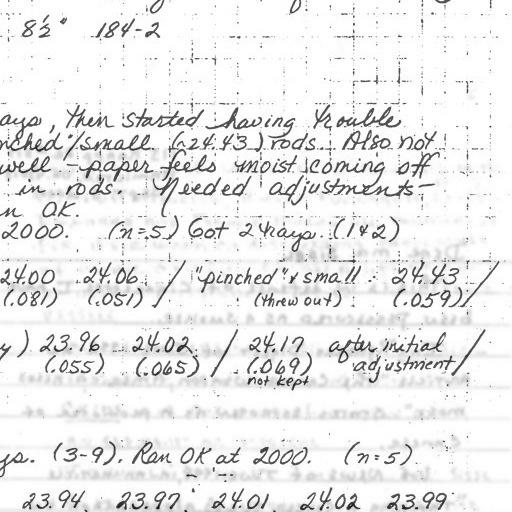 8½" 184-2
ays, then started having trouble
nched"/small (~24.43) rods. Also not
well - paper feels moist coming off
in rods. Needed adjustments-
n OK.
2000. (n=5) Got 2 trays. (1&2)
24.00 24.06 / "pinched" & small 24.43 /
(.081) (.051) (threw out) (.059)
y) 23.96 24.02 / 24.17 after initial /
(.055) (.065) (.069) adjustment
not kept
ys. (3-9). Ran OK at 2000. (n=5)
23.94 23.97 24.01 24.02 23.99